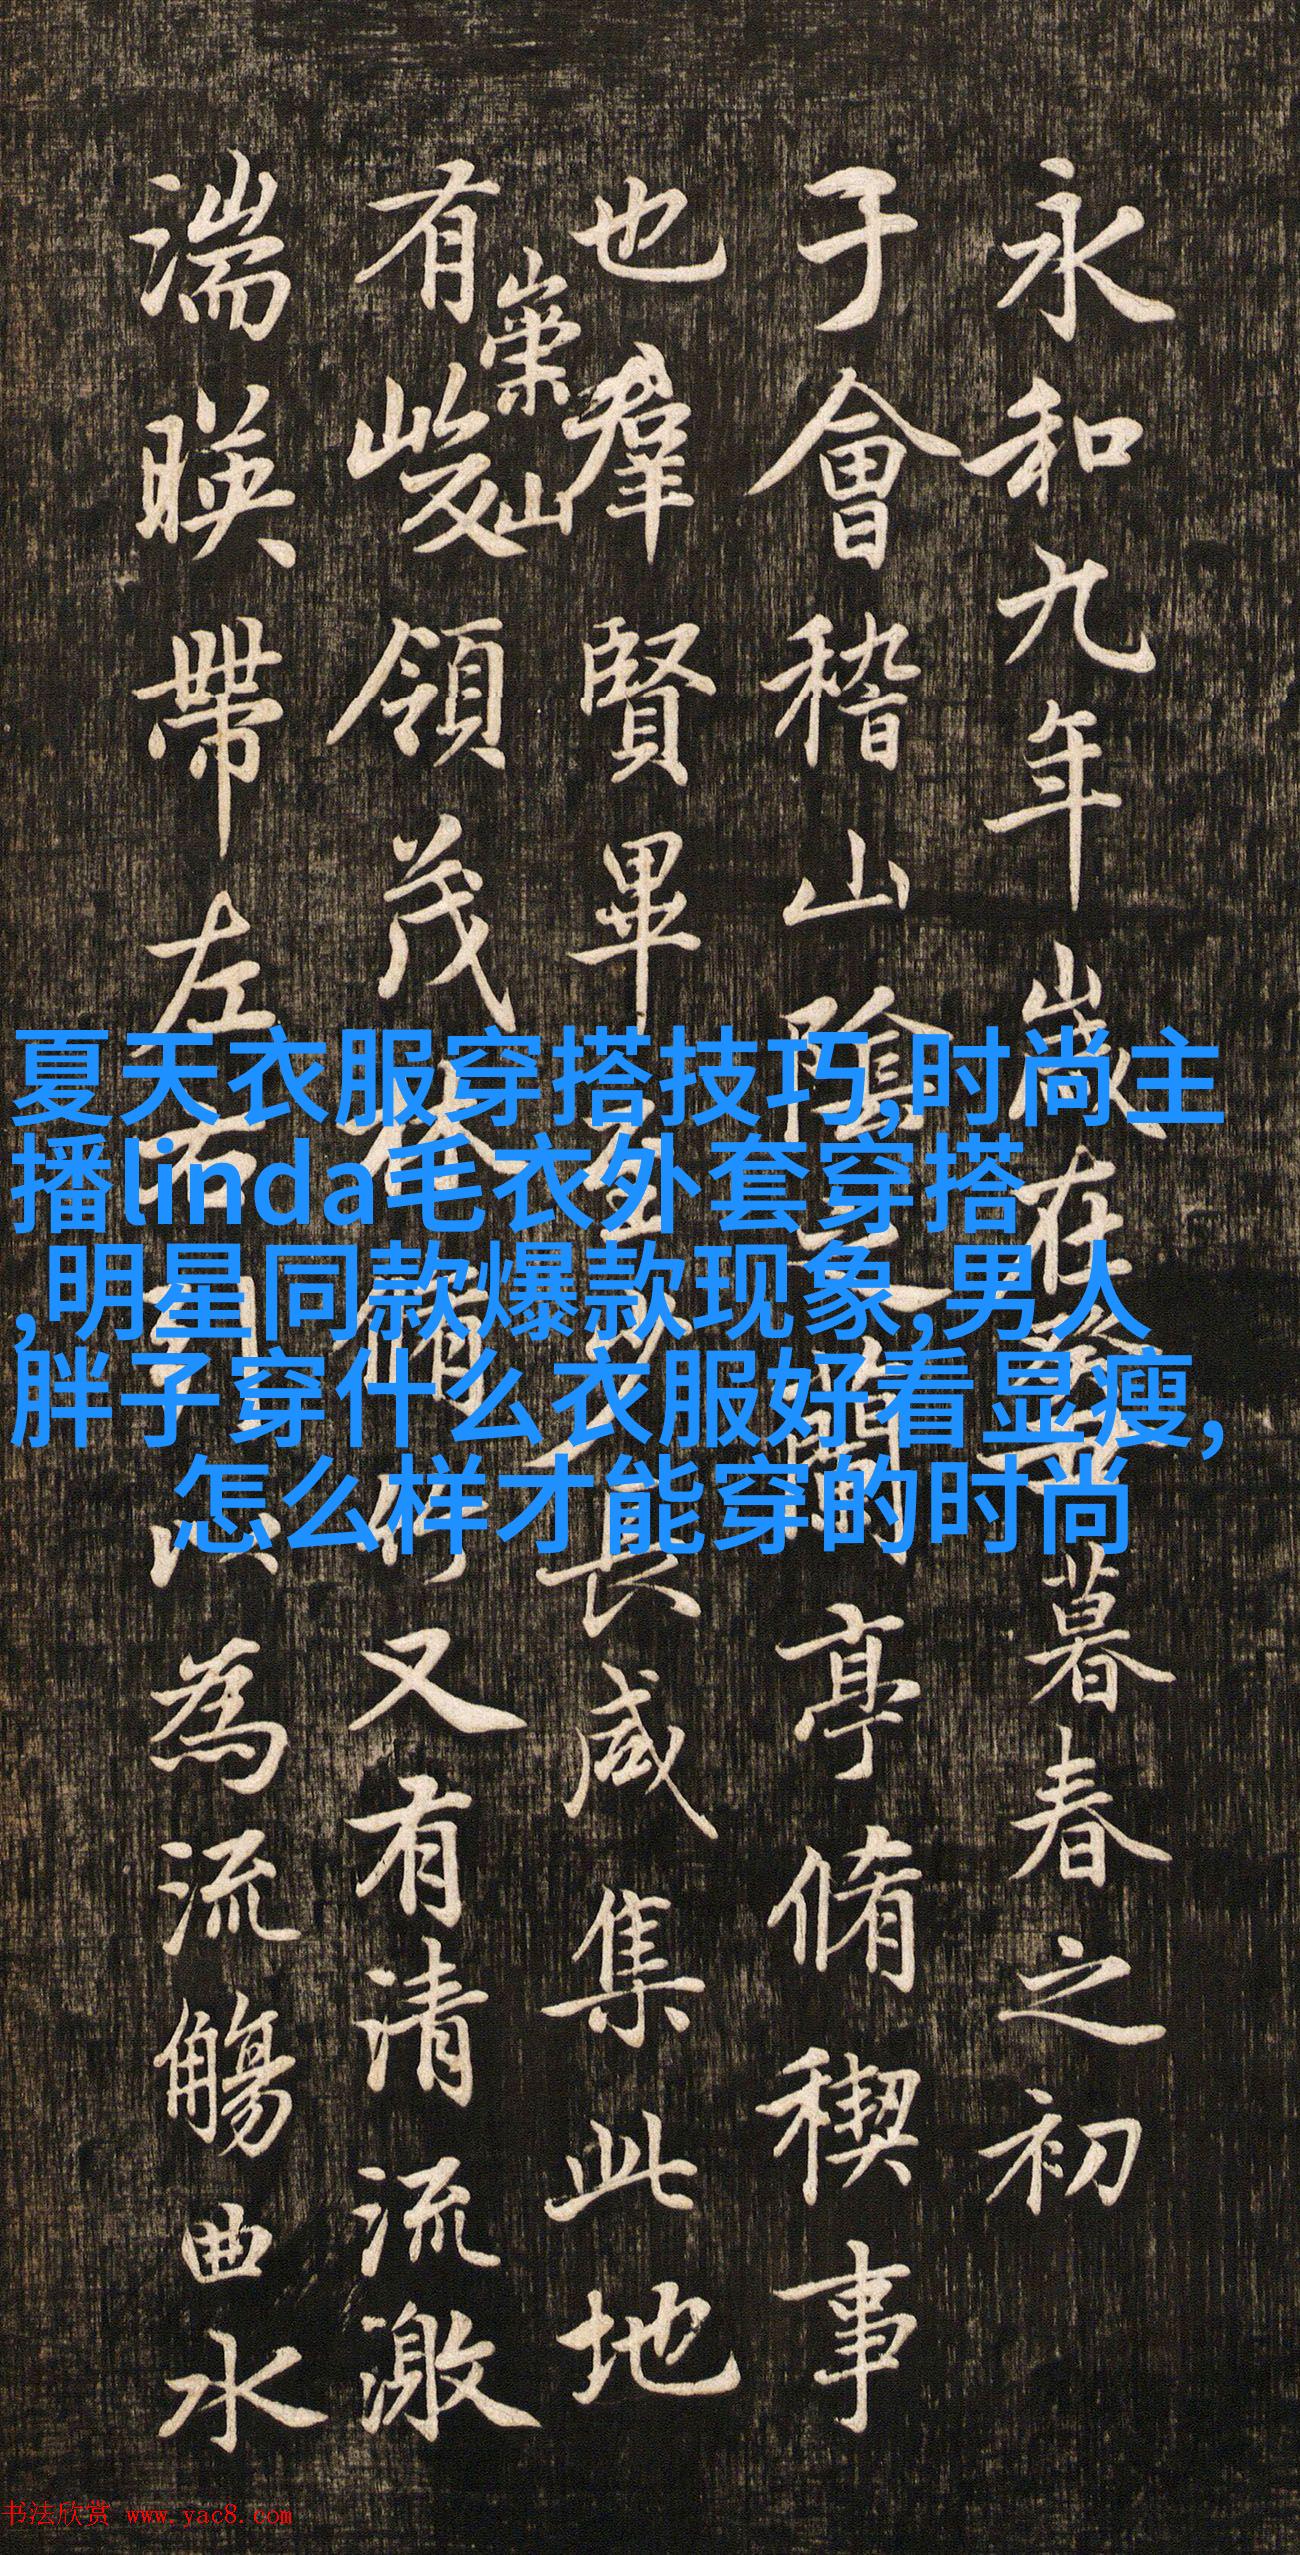 永和九年歲在癸丑暮春之初
于會稽山陰之蘭亭脩稧事
也羣賢畢至少長咸集此地
有崇山峻領茂林脩竹又有清流激
湍暎帶左右引以為流觴曲水
夏天衣服穿搭技巧,时尚主
播linda毛衣外套穿搭
,明星同款爆款现象,男人
胖子穿什么衣服好看显瘦,
怎么样才能穿的时尚
书法欣赏 www.yac8.com